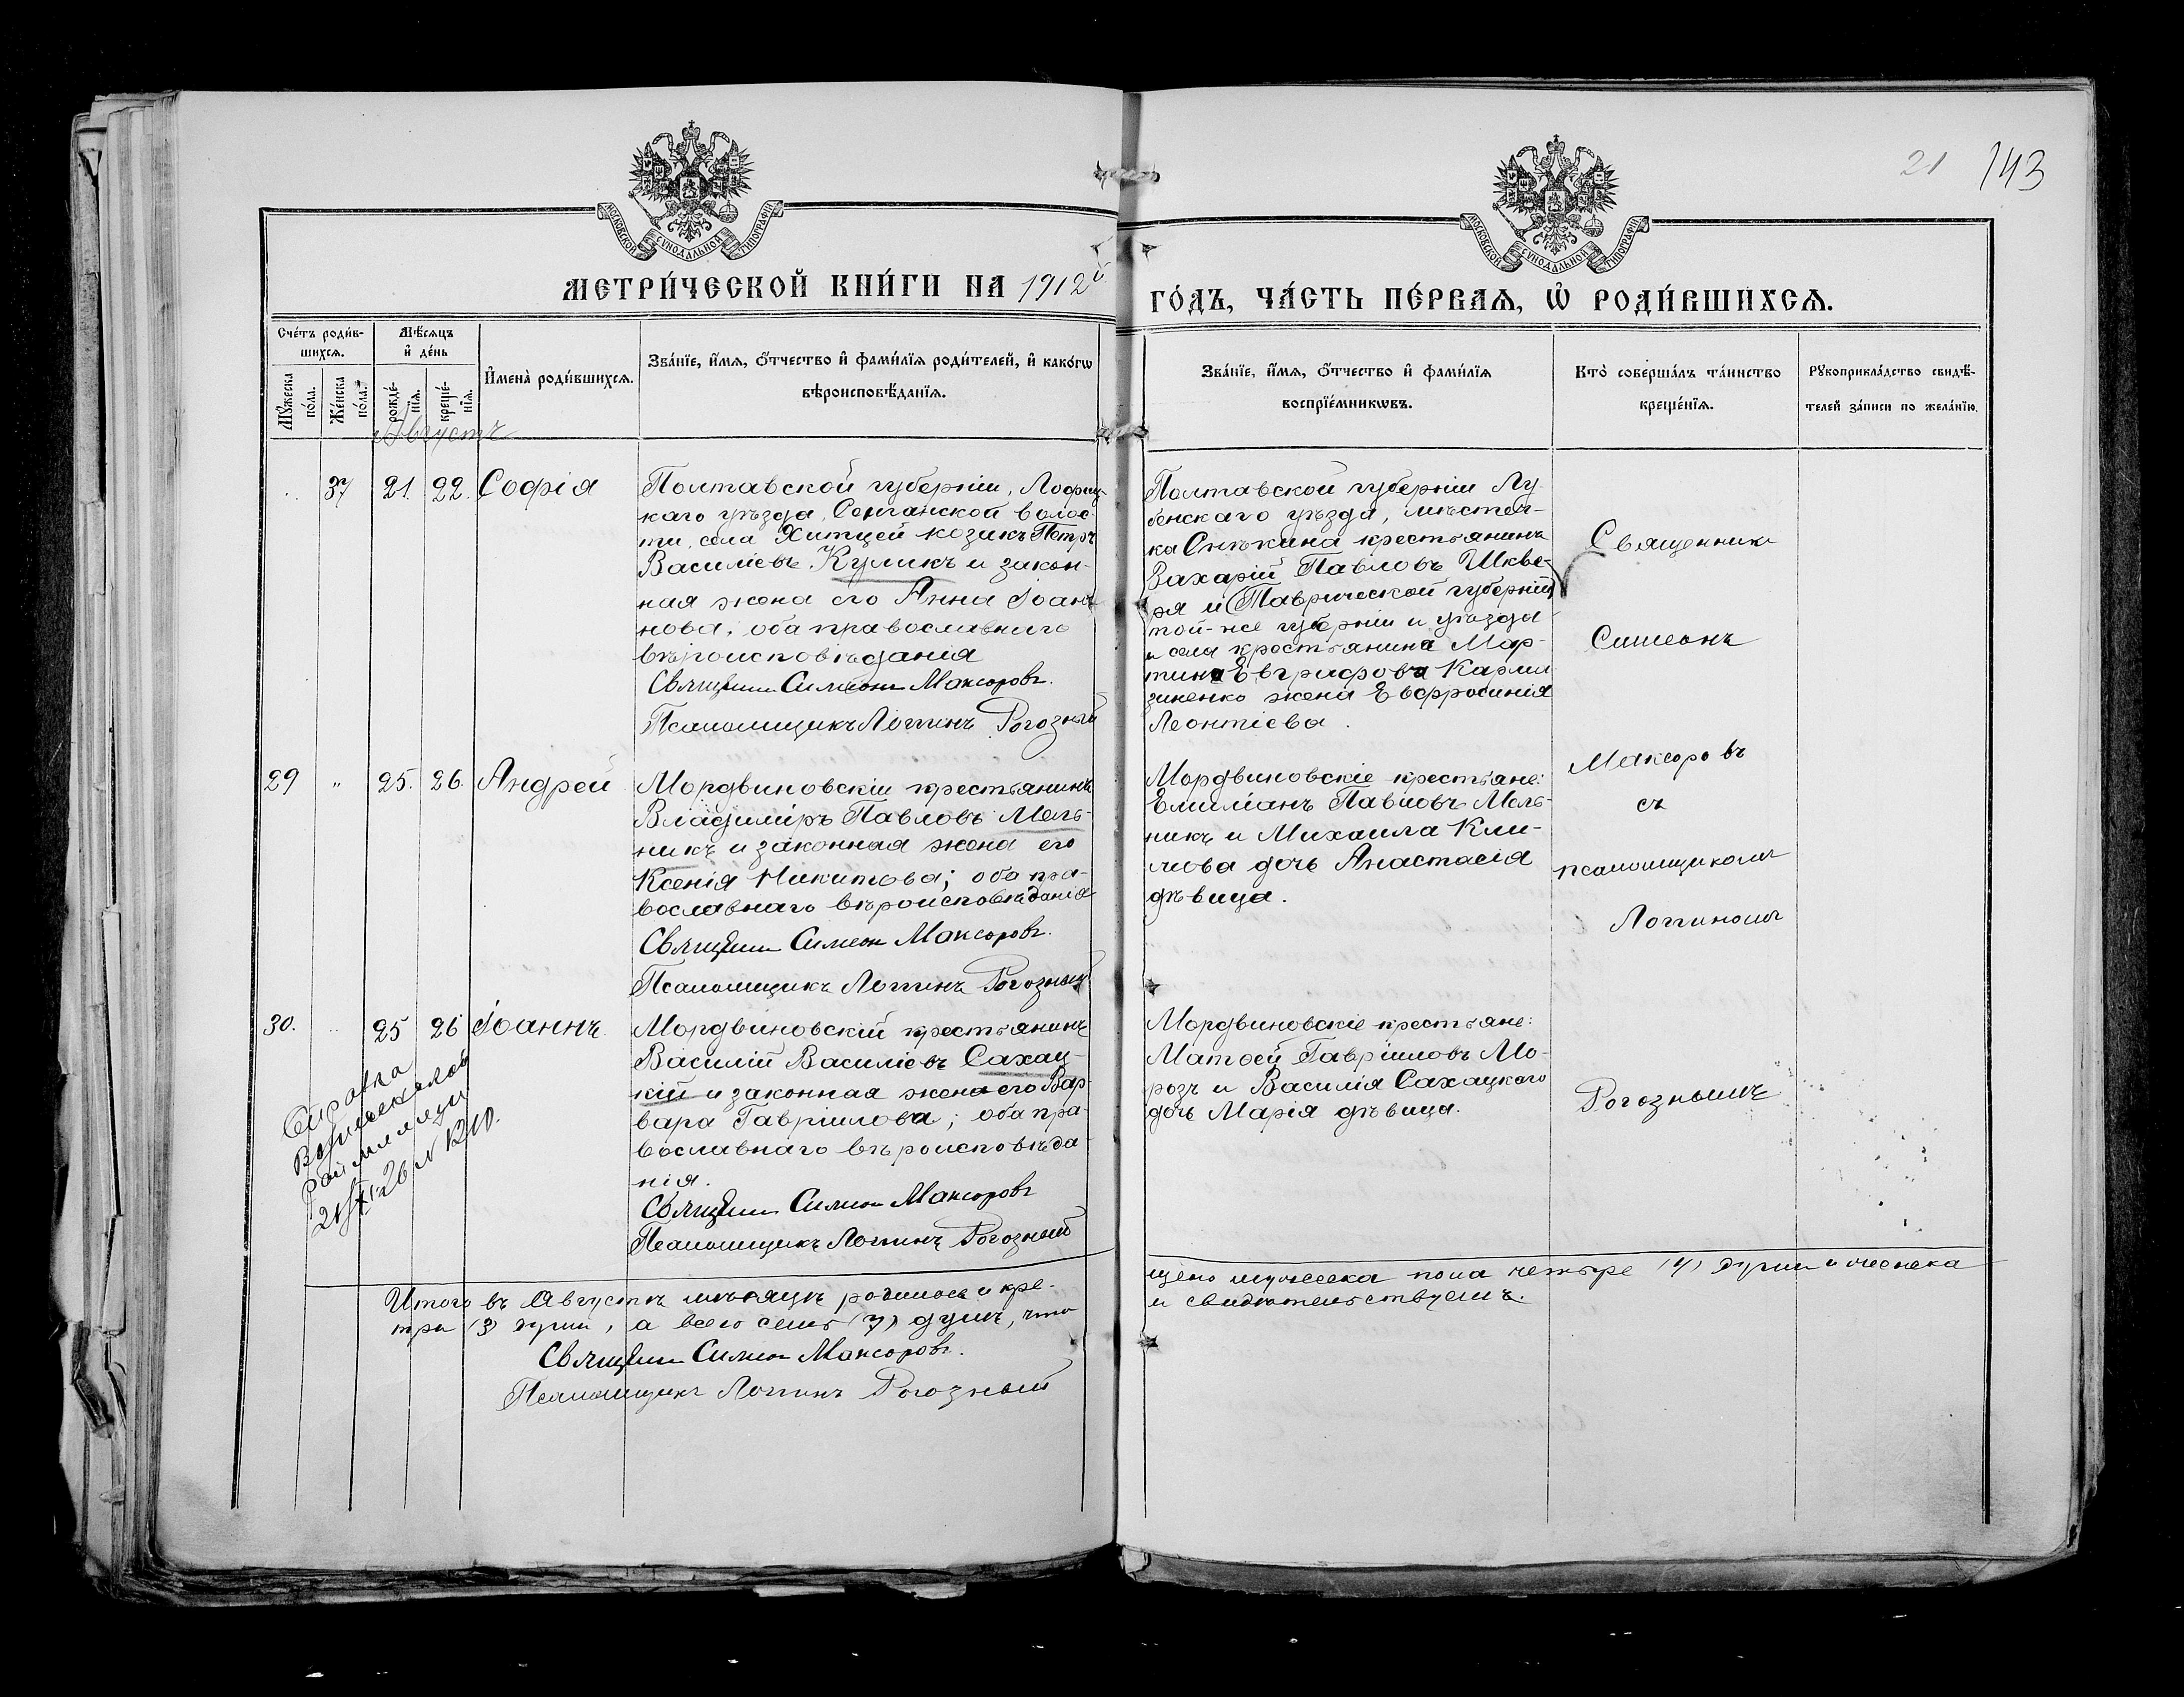 21 143
МОСКОВСКОЙ СѴНОДАЛЬНОЙ ТИПОГРАФІИ
МОСКОВСКОЙ СѴНОДАЛЬНОЙ ТИПОГРАФІИ
МЕТРИ́ЧЕСКОЙ КНИ́ГИ НА 1912й
ГО́ДЪ, ЧА́СТЬ ПЕ́РВАЯ, Ѡ҆ РОДИ́ВШИХСЯ.
Сче́тъ роди́в-
шихся.
Мѣ́сяцъ
и҆ де́нь
Мꙋ́жеска
по́ла.
Же́нска
по́ла.
рожде́-
нїя.
креще́-
нїя.
И҆мена̀ роди́вшихся.
Зва́нїе, и҆́мя, ѻ҆́тчество и҆ фами́лїя роди́телей, и҆ како́гѡ
вѣроисповѣ́данїя.
Зва́нїе, и҆́мя, ѻ҆́тчество и҆ фами́лїя
воспрїе́мникѡвъ.
Кто̀ соверша́лъ та́инство
креще́нїя.
Рꙋкоприкла́дство свидѣ́-
телей за́писи по жела́нїю.
Августъ
37 21. 22. Софія
Полтавской губерніи, Лохвиц-
каго уѣзда, Сенчанской волос-
ти, села Хитцей козакъ Петръ
Василіевъ Куликъ и закон-
ная жена его Анна Іоан-
нова, оба православнаго
вѣроисповѣданія
Священникъ Симеонъ Максоровъ.
Псаломщикъ Логгинъ Рогозный
Полтавской губерніи Лу-
бенскаго уѣзда, мѣстеч-
ка Снѣтина крестьянинъ
Захарій Павловъ Шкве-
ря и Таврической губерніи
той-же губерніи и уѣзда
и села крестьянина Мар-
тина Евграфова Карма
зиненко жена Евфросинія
Леонтіева.
29 " 25. 26. Андрей
Мордвиновскій крестьянинъ
Владиміръ Павловъ Мель-
никъ и законная жена его
Ксенія Никитова; оба пра-
вославнаго вѣроисповѣданія
Священникъ Симеонъ Максоровъ.
Псаломщикъ Логгинъ Рогозный
Мордвиновскіе крестьяне:
Емиліанъ Павловъ Мель-
никъ и Михаила Кли-
мова дочь Анастасія
дѣвица.
30. 25 26 Іоаннъ
Мордвиновскій крестьянинъ
Василій Василіевъ Сахац-
кій и законная жена его Вар-
вара Гавріилова; оба пра-
вославнаго вѣроисповѣда-
нія.
Священникъ Симеонъ Максоровъ
Псаломщикъ Логгинъ Рогозный
Мордвиновскіе крестьяне:
Матѳей Гавріиловъ Мо-
розъ и Василія Сахацкаго
дочь Марія дѣвица.
Священникъ
Симеонъ
Максоровъ
съ
псаломщикомъ
Логгиномъ
Рогознымъ
Справка
рай милиции
Итого въ Августѣ мѣсяцѣ родилось и кре-
щено мужеска пола четыре (4) души и женска
три (3) души, а всего семь (7) душъ, что
и свидѣтельствуемъ.
Священникъ Симеонъ Максоровъ.
Псаломщикъ Логгинъ Рогозный